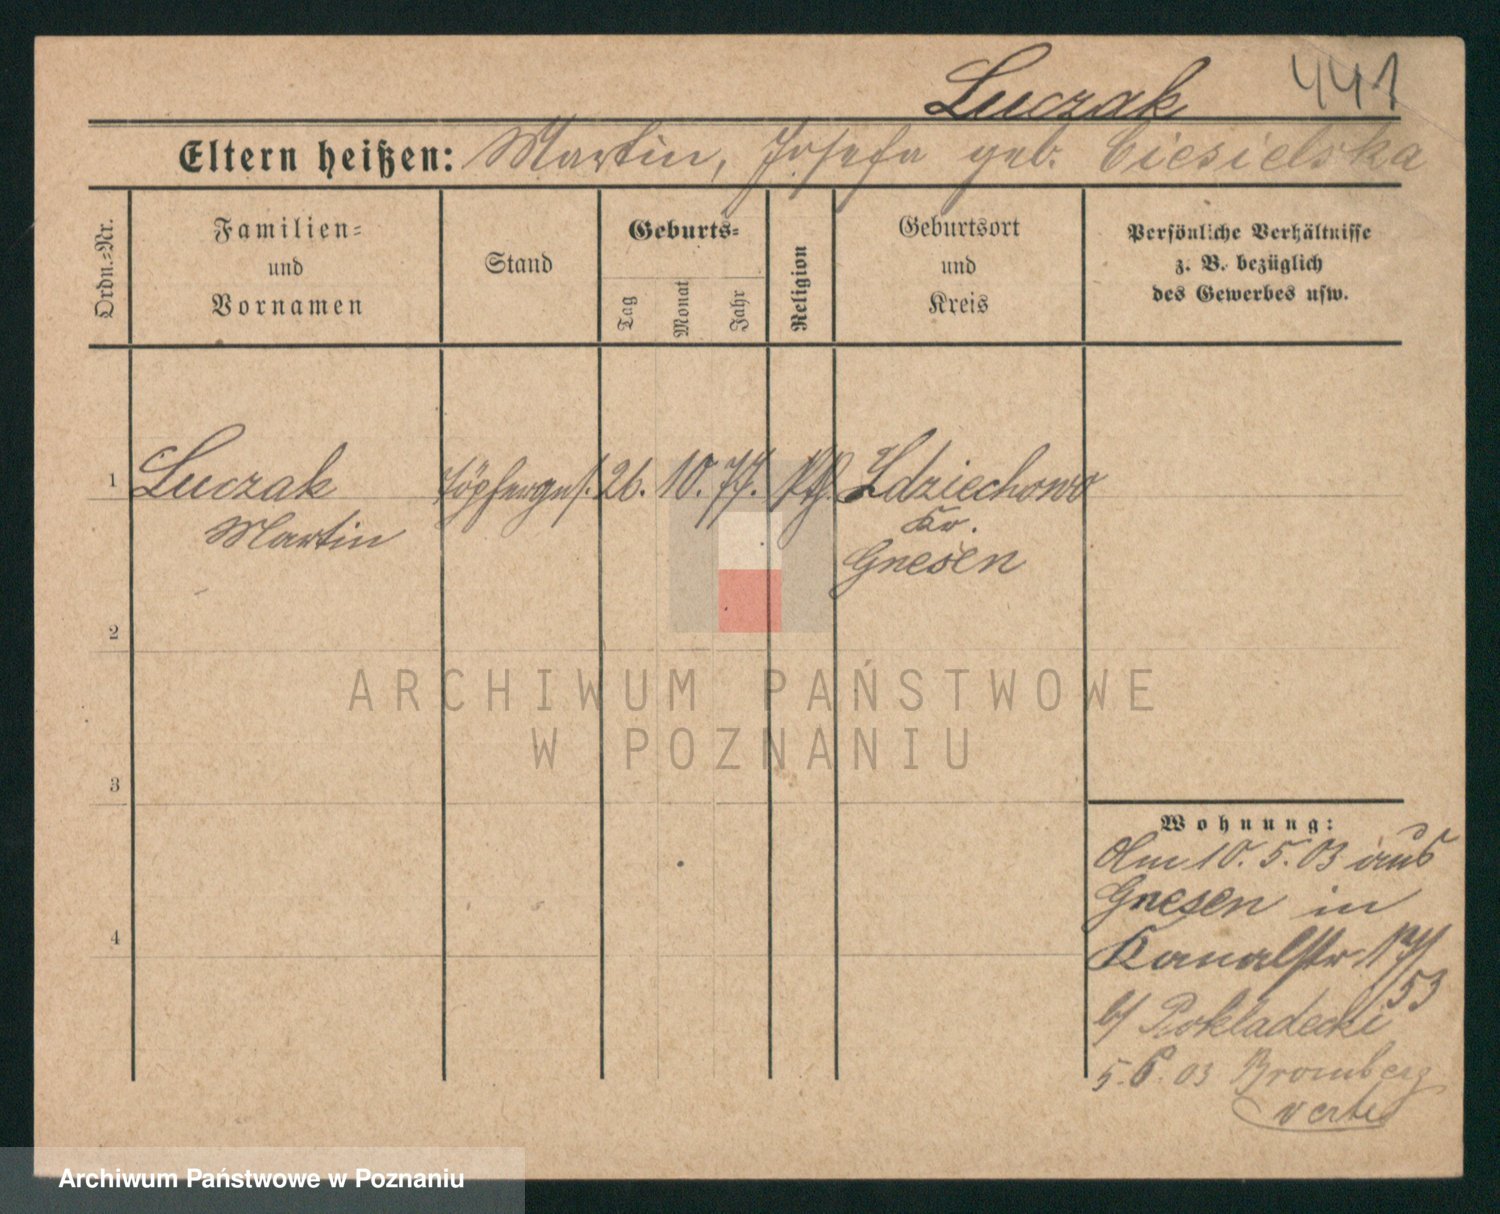 Luczak 441
Eltern heißen: Martin, Josefa geb. Ciesielska
Ordn.-Nr.
Familien-
und
Vornamen
Stand
Geburts-
Tag
Monat
Jahr
Religion
Geburtsort
und
Kreis
Persönliche Verhältnisse
z. B. bezüglich
des Gewerbes usw.
1 Luczak Töpferges. 26. 10. 77. kth. Zdziechowo
Martin Kr.
Gnesen
2
ARCHIWUM PAŃSTWOWE
W POZNANIU
3
Wohnung:
Am 10. 5. 03 aus
Gnesen in
4
Kanalstr.
53
b/ Pokladecki
5. 6. 03 Bromberg
verte
Archiwum Państwowe w Poznaniu